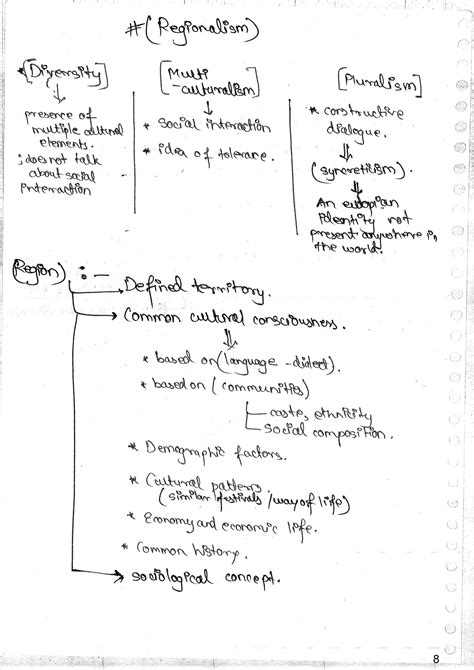 # (Regionalism)
* [Diversity]
presence of
multiple cultural
elements.
; does not talk
about social
interaction
[Multi
-culturalism]
* social interaction
* idea of tolerance.
[Pluralism]
* constructive
dialogue.
(syncretilism).
An
identity not
present anywhere in
the world.
(Region) : —
Defined territory.
Common cultural consciousness.
* based on (language - dialect).
* based on (communities)
caste, ethnicity
social composition.
* Demographic factors.
* Cultural pattern
(similar festivals / way of life)
* Economy and economic life.
* Common history.
sociological concept.
8